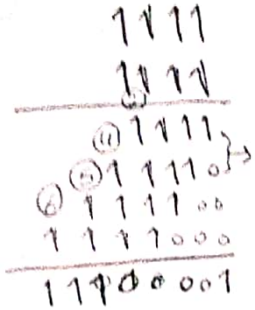 1111
1111
1111
11110
111100
1111000
11100001